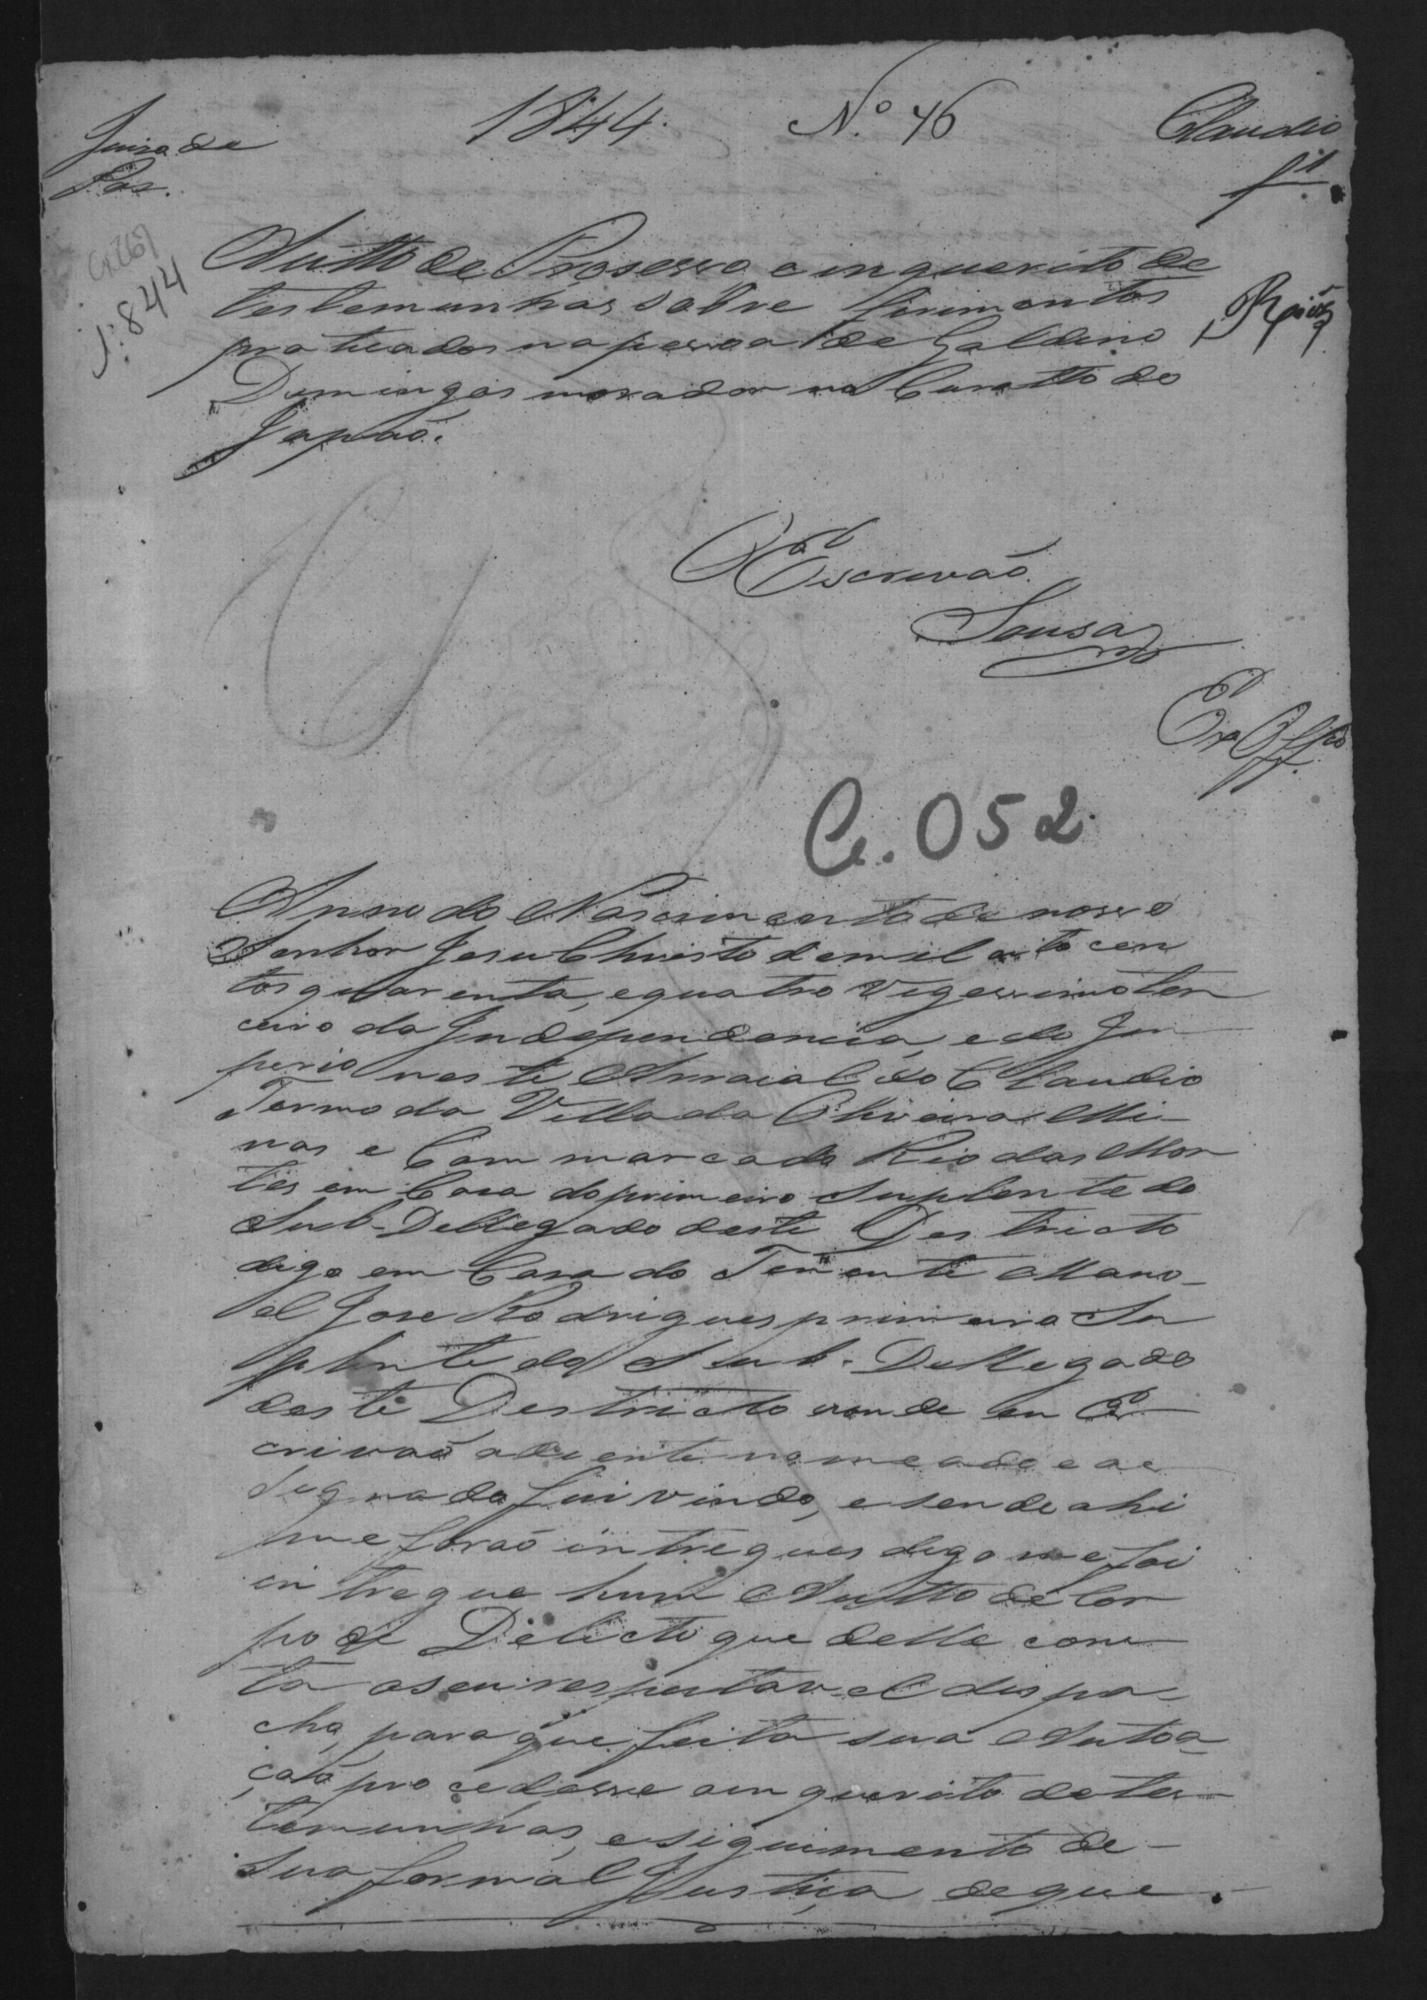 1844. Nº 46 Claudio
Juizo de
Paz.
f 1
Autto de Prosesso e inquerito de
testemunhas sobre ferimentos
praticados na pessoa de Galdino
Domingos morador no Curatto do
Japaõ.
1844
O Escrivaõ
Sousa
Ex Offº
Cx. 052
Anno do Nascimento de nosso
Senhor Jesu Christo de mil oito cen
tos quarenta, e quatro Vigessimo ter
ceiro da Independencia, e do Im
perio neste Arraial do Claudio
Termo da Villa da Oliveira Mi-
nas e Commarca do Rio das Mor
tes em Casa do primeiro Suplente do
Sub-Dellegado deste Destricto
digo em Casa do Tenente Mano-
el Jose Rodrigues primeiro Su
plente do Sub-Dellegado
deste Destricto onde eu Es
crivaõ adiente nomeado e as
signado fui vindo, e sendo ahi
me foraõ intregues digo me foi
intregue hum Autto de Cor
po de Delicto que delle cons
ta o seu respeitavel dispa
cho, para que feita sua Autoa-
çaõ procedesse a inquerito de tes-
temunhas, e siguimento de-
sua formal Justiça, de que